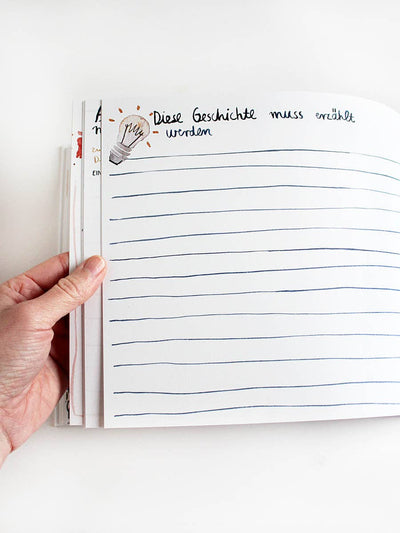 Diese Geschichte muss erzählt
werden